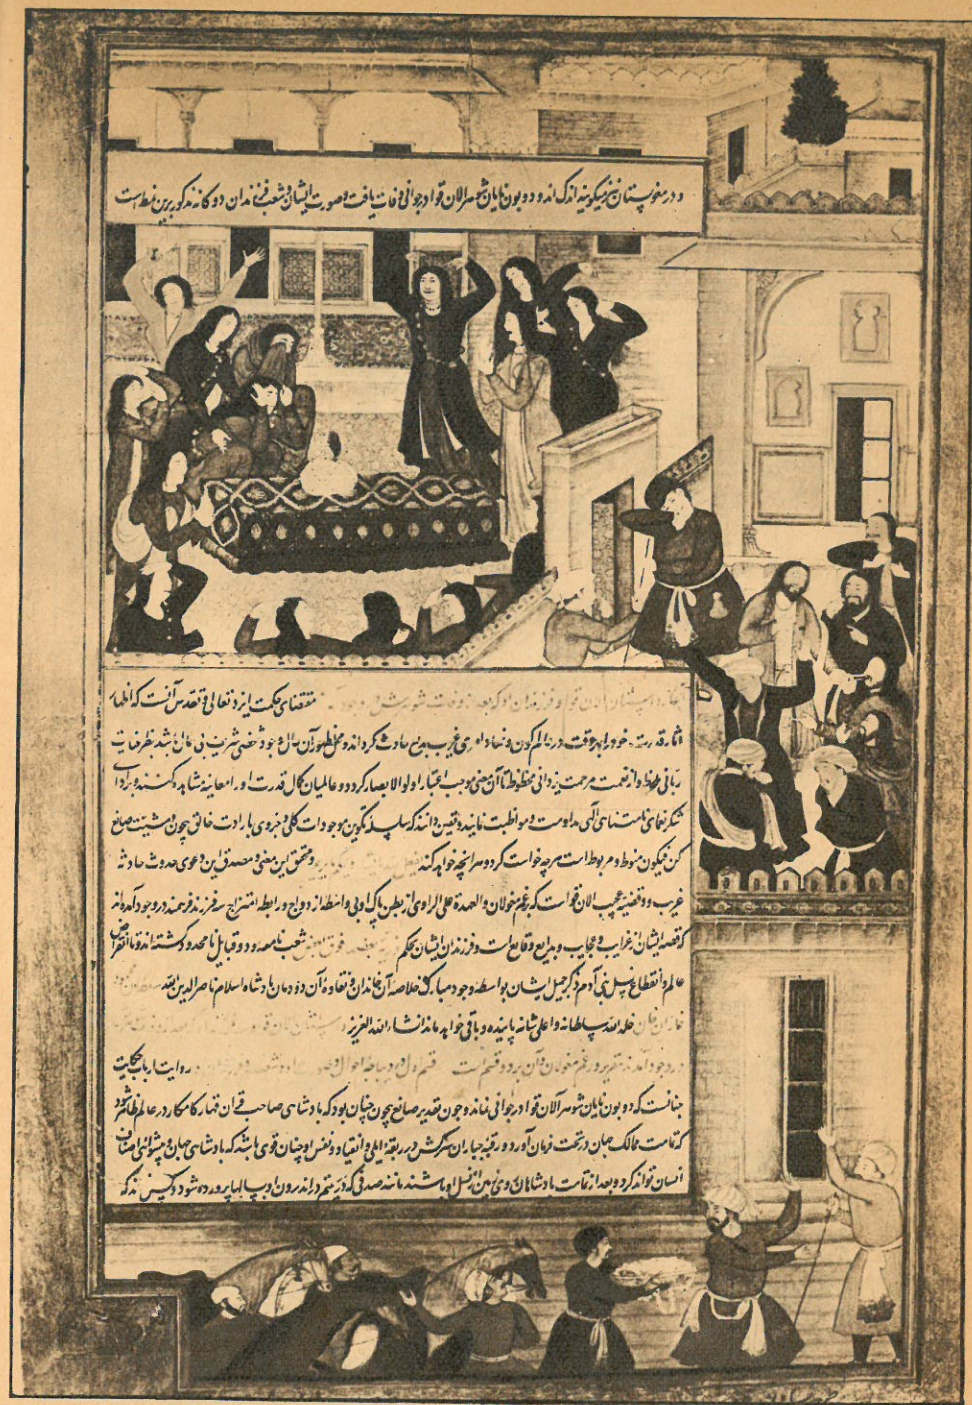 و در مغولستان نیز میگویند اندک‌اند و دوبون بایان شوهر الان قوا در جوانی وفات یافت و صورت ایشان و شعب فرزندان دوگانه مذکور برین نمط است
مقتضای حکمت ایزد تعالی و تقدس آنست که اظهار
آثار قدرت خود را بهر وقت در عالم کون و فساد امری غریب بدیع حادث گرداند و محل ظهور آن حال وجود شخصی شریف بی‌همال باشد بنظر عنایت
ربانی ملحوظ و از نعمت مرحمت یزدانی محظوظ تا آن معنی موجب اعتبار اولوالابصار گردد و عالمیان کمال قدرت او را معاینه مشاهده کنند و برادای
شکر نعمای نامتناهی الهی مداومت و مواظبت نمایند و یقین دانند که سلسله تکوین موجودات کلی و جزوی بارادت خالق بیچون و مشیت صانع
کن فیکون منوط و مربوط است هرچه خواست کرد و هر آنچه خواهد کند و محقق این معنی و مصدق این دعوی حدوث حادثه
غریب و وقضیه عجیب الان قواست که بزعم مغولان والعهدة علی الراوی از بطن پاک او بی واسطه ازدواج و رابطه امتزاج سه فرزند فرهمند در وجود آمده‌اند
که قصه ایشان از غرایب و عجایب و بدایع وقایع است و فرزندان ایشان بحکم شعب نامعدود و قبایل نامحدود گشته‌اند و تا انقراض
عالم و انقطاع نسل بنی آدم ذکر جمیل ایشان بواسطه وجود مبارک خلاصه آن خاندان و نقاوه آن دودمان پادشاه اسلام ناصر الدین الله
خلد الله سلطانه و اعلی شانه پاینده و باقی خواهد ماند انشاء الله العزیز
در وجود آمدند بتقریر و زعم مغولان و آن بر دو قسم است روایت ارباب حکایت
چنانست که دوبون بایان شوهر آلان قوا در جوانی نماند و چون تقدیر صانع بیچون چنان بود که پادشاهی صاحب قران قهار کامکار در عالم ظاهر شود
که تمامت ممالک جهان در تحت فرمان آورد و رقبه جباران سرکش در ربقه ایلی و انقیاد و نفس او چنان قوی باشد که پادشاهی جهان و پیشوائی اصناف
انسان تواند کرد و بعد از تمامت پادشاهان روی زمین از نسل او باشند مانند صدفی که در یتیم در اندرون او بسالها پرورده شود